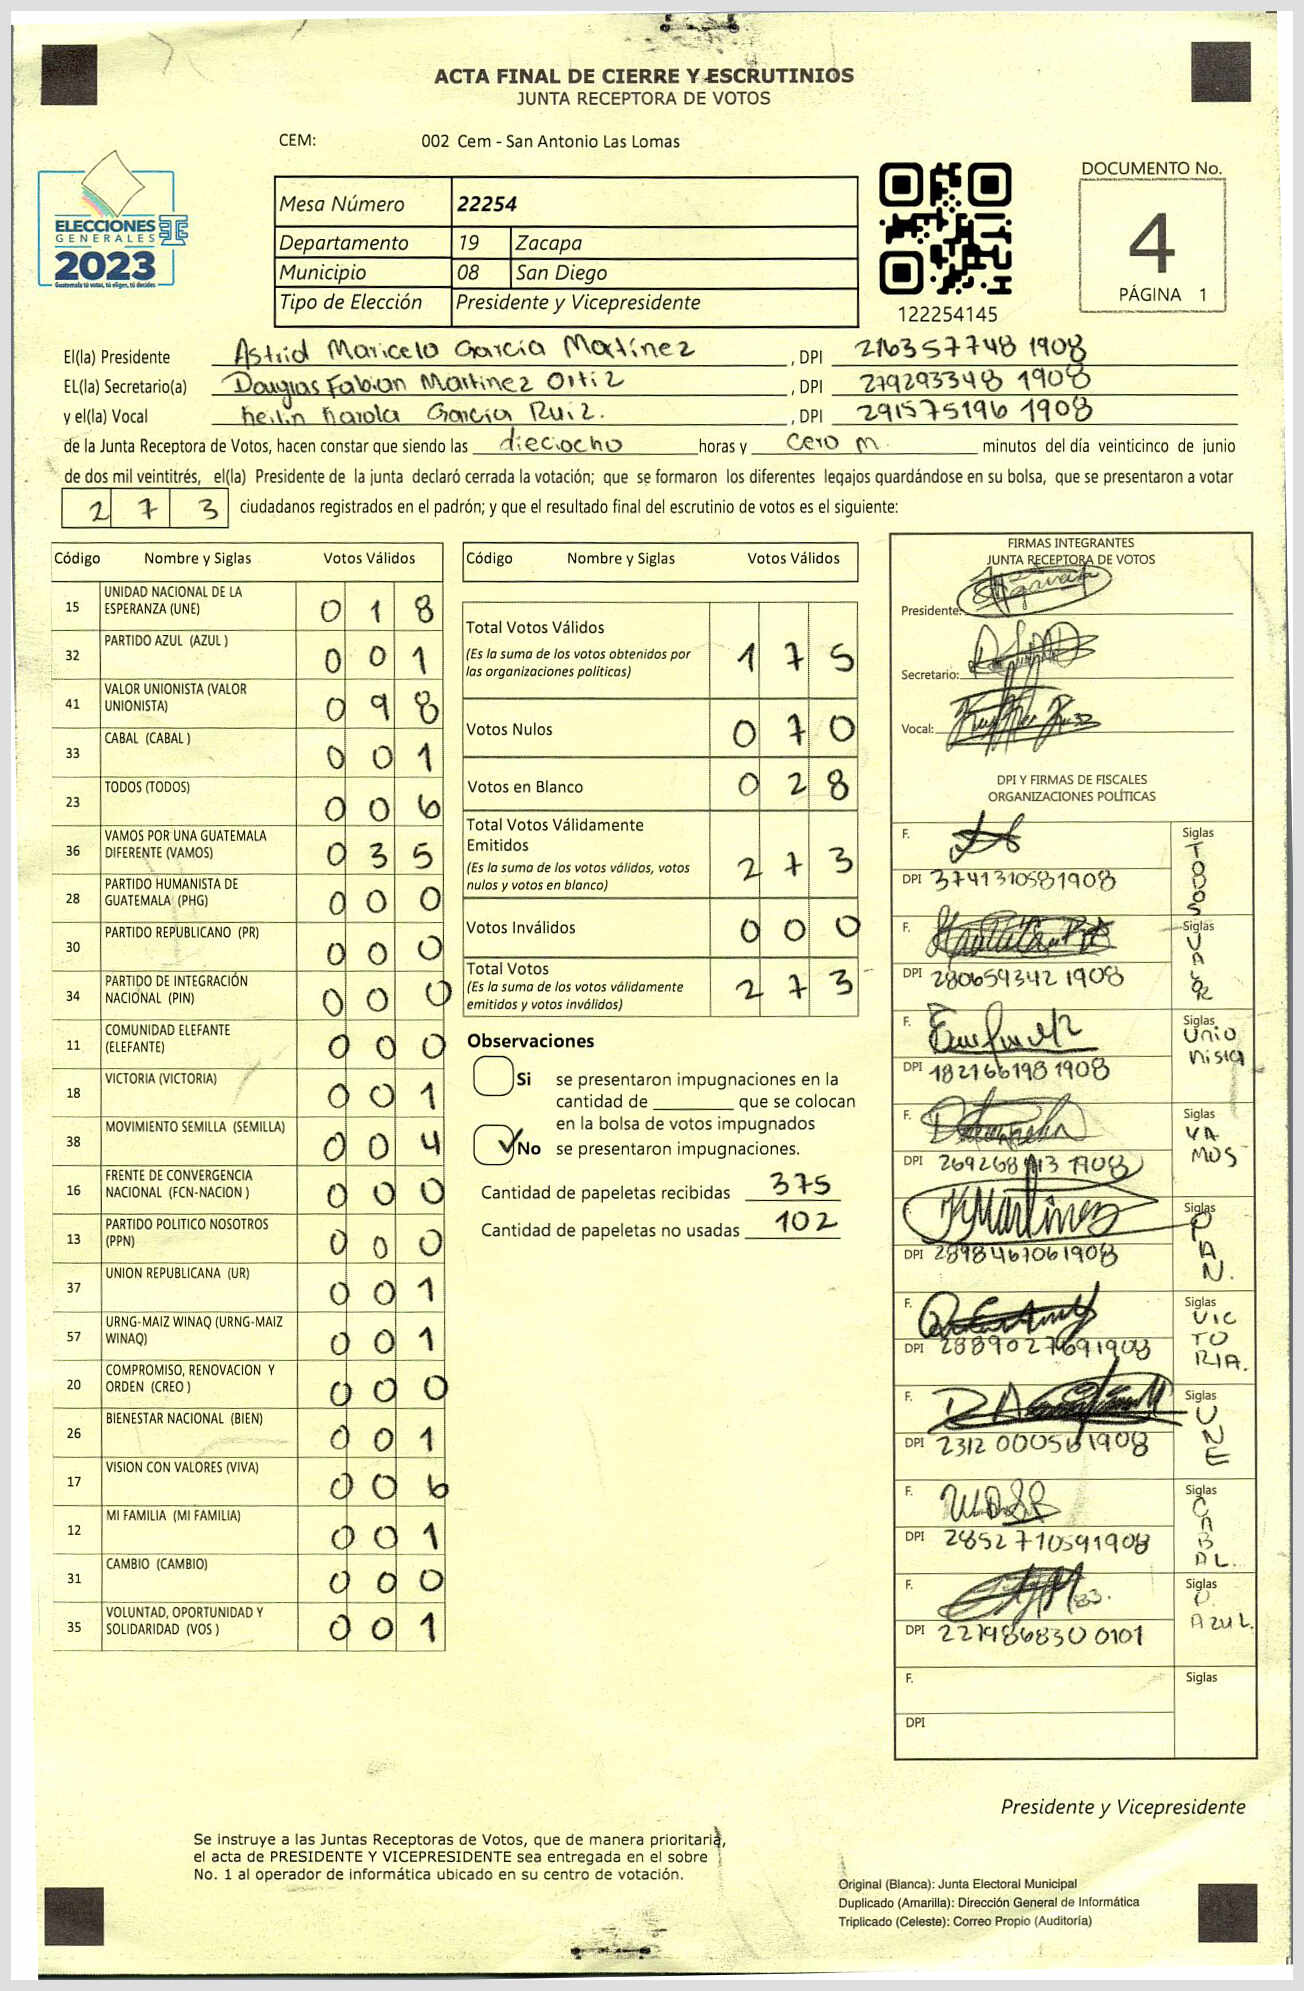 ACTA FINAL DE CIERRE Y ESCRUTINIOS
JUNTA RECEPTORA DE VOTOS
CEM: 002 Cem - San Antonio Las Lomas
ELECCIONES
GENERALES
2023
Guatemala tú votas, tú eliges, tú decides
Mesa Número 22254
Departamento 19 Zacapa
Municipio 08 San Diego
Tipo de Elección Presidente y Vicepresidente
122254145
DOCUMENTO No.
4
PÁGINA 1
El(la) Presidente Astrid Maricelo García Martínez, DPI 216357748 1908
EL(la) Secretario(a) Douglas Fabian Martinez Ortiz, DPI 279293348 1908
y el(la) Vocal Keilin Karola García Ruiz., DPI 291575196 1908
de la Junta Receptora de Votos, hacen constar que siendo las dieciocho horas y cero m. minutos del día veinticinco de junio
de dos mil veintitrés, el(la) Presidente de la junta declaró cerrada la votación; que se formaron los diferentes legajos guardándose en su bolsa, que se presentaron a votar
273 ciudadanos registrados en el padrón; y que el resultado final del escrutinio de votos es el siguiente:
Código Nombre y Siglas Votos Válidos
15 UNIDAD NACIONAL DE LA ESPERANZA (UNE) 018
32 PARTIDO AZUL (AZUL ) 001
41 VALOR UNIONISTA (VALOR UNIONISTA) 098
33 CABAL (CABAL ) 001
23 TODOS (TODOS) 006
36 VAMOS POR UNA GUATEMALA DIFERENTE (VAMOS) 035
28 PARTIDO HUMANISTA DE GUATEMALA (PHG) 000
30 PARTIDO REPUBLICANO (PR) 000
34 PARTIDO DE INTEGRACIÓN NACIONAL (PIN) 000
11 COMUNIDAD ELEFANTE (ELEFANTE) 000
18 VICTORIA (VICTORIA) 001
38 MOVIMIENTO SEMILLA (SEMILLA) 004
16 FRENTE DE CONVERGENCIA NACIONAL (FCN-NACION ) 000
13 PARTIDO POLITICO NOSOTROS (PPN) 000
37 UNION REPUBLICANA (UR) 001
57 URNG-MAIZ WINAQ (URNG-MAIZ WINAQ) 001
20 COMPROMISO, RENOVACION Y ORDEN (CREO ) 000
26 BIENESTAR NACIONAL (BIEN) 001
17 VISION CON VALORES (VIVA) 006
12 MI FAMILIA (MI FAMILIA) 001
31 CAMBIO (CAMBIO) 000
35 VOLUNTAD, OPORTUNIDAD Y SOLIDARIDAD (VOS ) 001
Código Nombre y Siglas Votos Válidos
Total Votos Válidos 175
(Es la suma de los votos obtenidos por
las organizaciones políticas)
Votos Nulos 070
Votos en Blanco 028
Total Votos Válidamente
Emitidos 273
(Es la suma de los votos válidos, votos
nulos y votos en blanco)
Votos Inválidos 000
Total Votos 273
(Es la suma de los votos válidamente
emitidos y votos inválidos)
Observaciones
Si se presentaron impugnaciones en la
cantidad de ________ que se colocan
en la bolsa de votos impugnados
No se presentaron impugnaciones.
Cantidad de papeletas recibidas 375
Cantidad de papeletas no usadas 102
FIRMAS INTEGRANTES
JUNTA RECEPTORA DE VOTOS
Presidente:
Secretario:
Vocal:
DPI Y FIRMAS DE FISCALES
ORGANIZACIONES POLÍTICAS
F. Siglas TODOS
DPI 3741310581908
F. Siglas VALOR
DPI 280659342 1908
F. Siglas Unionista
DPI 182166198 1908
F. Siglas VAMOS
DPI 1908
F. KMartinez Siglas PAN.
DPI 2898467061908
F. Siglas VICTORIA.
DPI 2889027691908
F. Siglas UNE
DPI 2312 000561908
F. Siglas CABAL.
DPI 2852710591908
F. Siglas P. AZUL.
DPI 221986830 0101
F. Siglas
DPI
Presidente y Vicepresidente
Se instruye a las Juntas Receptoras de Votos, que de manera prioritaria,
el acta de PRESIDENTE Y VICEPRESIDENTE sea entregada en el sobre
No. 1 al operador de informática ubicado en su centro de votación.
Original (Blanca): Junta Electoral Municipal
Duplicado (Amarilla): Dirección General de Informática
Triplicado (Celeste): Correo Propio (Auditoría)